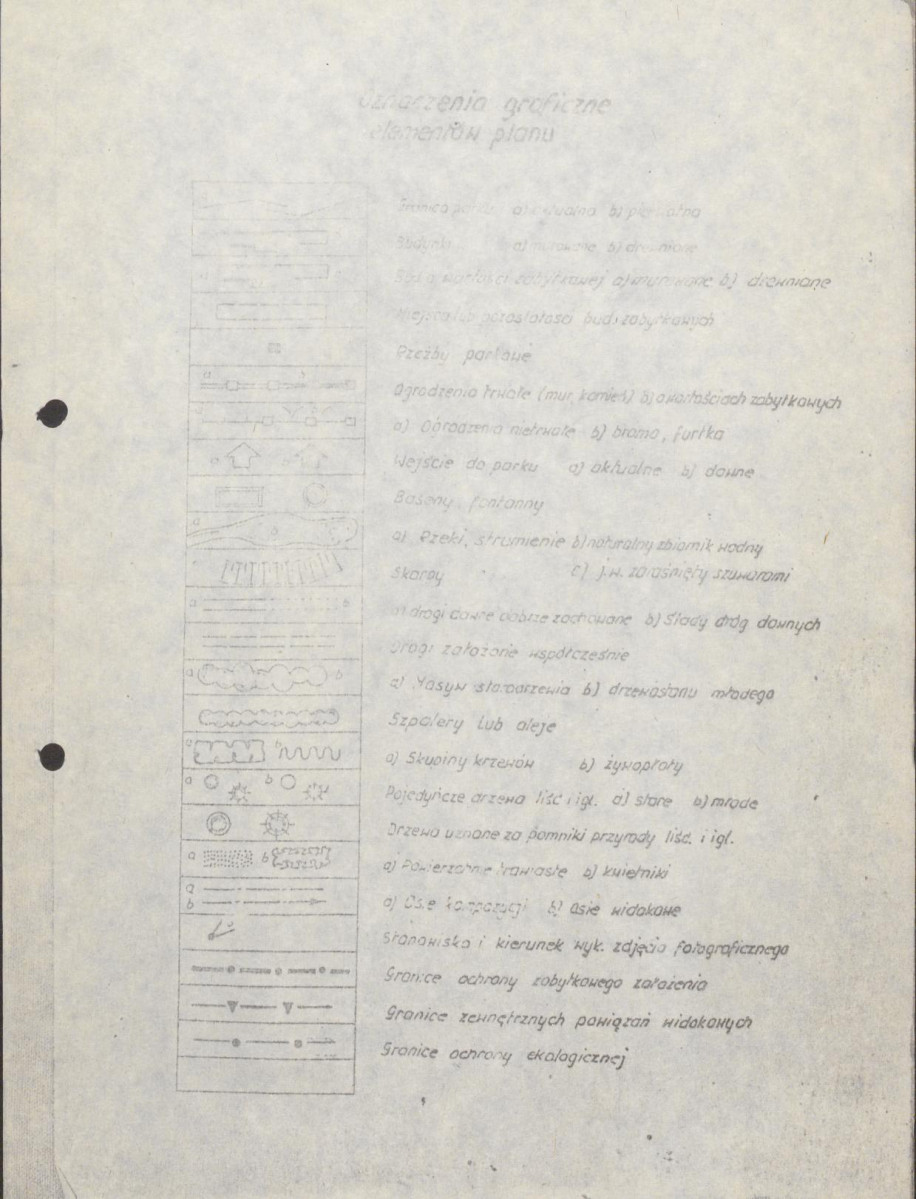 Oznaczenia graficzne
elementów planu
Granica parku a) aktualna b) pierwotna
Budynki a) murowane b) drewniane
Bud. o wartości zabytkowej a) murowane b) drewniane
Miejsca lub pozostałości bud. zabytkowych
Rzeźby parkowe
a b
Ogrodzenia trwałe (mur, kamień) b) o wartościach zabytkowych
a) Ogrodzenia nietrwałe b) brama, furtka
a b
Wejście do parku a) aktualne b) dawne
Baseny, fontanny
a b
a) Rzeki, strumienie b) naturalny zbiornik wodny
Skarpy c) j.w. zarośnięty szuwarami
a b
a) drogi dawne dobrze zachowane b) Ślady dróg dawnych
Drogi założone współcześnie
a b
a) Masyw starodrzewia b) drzewostanu młodego
Szpalery lub aleje
a b
a) Skupiny krzewów b) żywopłoty
a b
Pojedyńcze drzewa liśc i igl. a) stare b) młode
Drzewa uznane za pomniki przyrody liśc. i igl.
a b
a) Powierzchnie trawiaste b) kwietniki
a
b
a) Osie kompozycji b) Osie widokowe
Stanowiska i kierunek wyk. zdjęcia fotograficznego
Granice ochrony zabytkowego założenia
Granice zewnętrznych powiązań widokowych
Granice ochrony ekologicznej